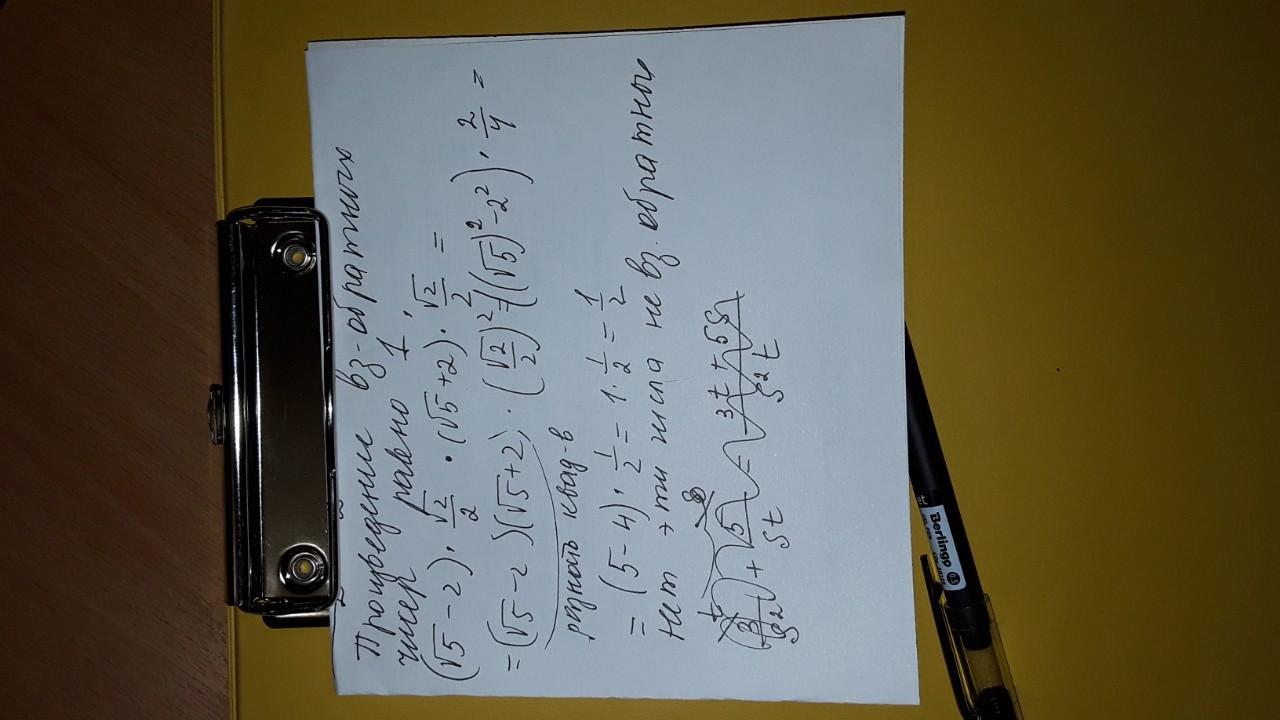 Произведение вз-обратных
чисел равно 1.
(√5-2)·√2/2·(√5+2)·√2/2=
=(√5-2)(√5+2)·(√2/2)²=((√5)²-2²)·2/4=
разность квад-в
=(5-4)·1/2=1·1/2=1/2
нет, эти числа не вз. обратные
Berlingo